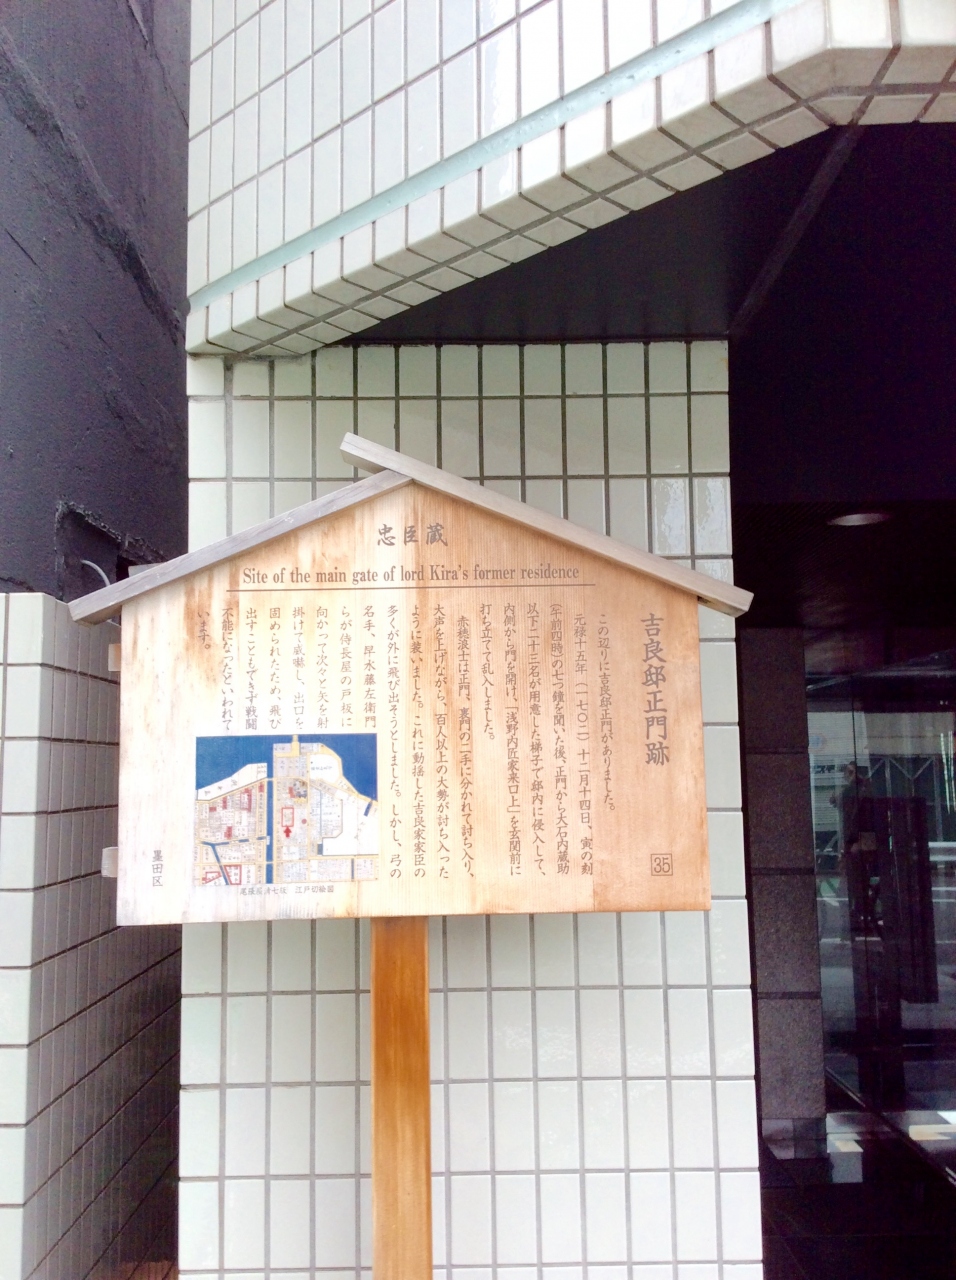 忠臣蔵
Site of the main gate of lord Kira's former residence
吉良邸正門跡
この辺りに吉良邸正門がありました。
元禄十五年（一七〇二）十二月十四日、寅の刻
（午前四時）の七つ鐘を聞いた後、正門から大石内蔵助
以下二十三名が用意した梯子で邸内に侵入して、
内側から門を開け、「浅野内匠家来口上」を玄関前に
打ち立てて乱入しました。
赤穂浪士は正門、裏門の二手に分かれて討ち入り、
大声を上げながら、百人以上の大勢が討ち入った
ように装いました。これに動揺した吉良家家臣の
多くが外に飛び出そうとしました。しかし、弓の
名手、早水藤左衛門
らが侍長屋の戸板に
向かって次々と矢を射
掛けて威嚇し、出口を
固められたため、飛び
出すこともできず戦闘
不能になったといわれて
います。
35
尾張屋清七版 江戸切絵図
墨田区